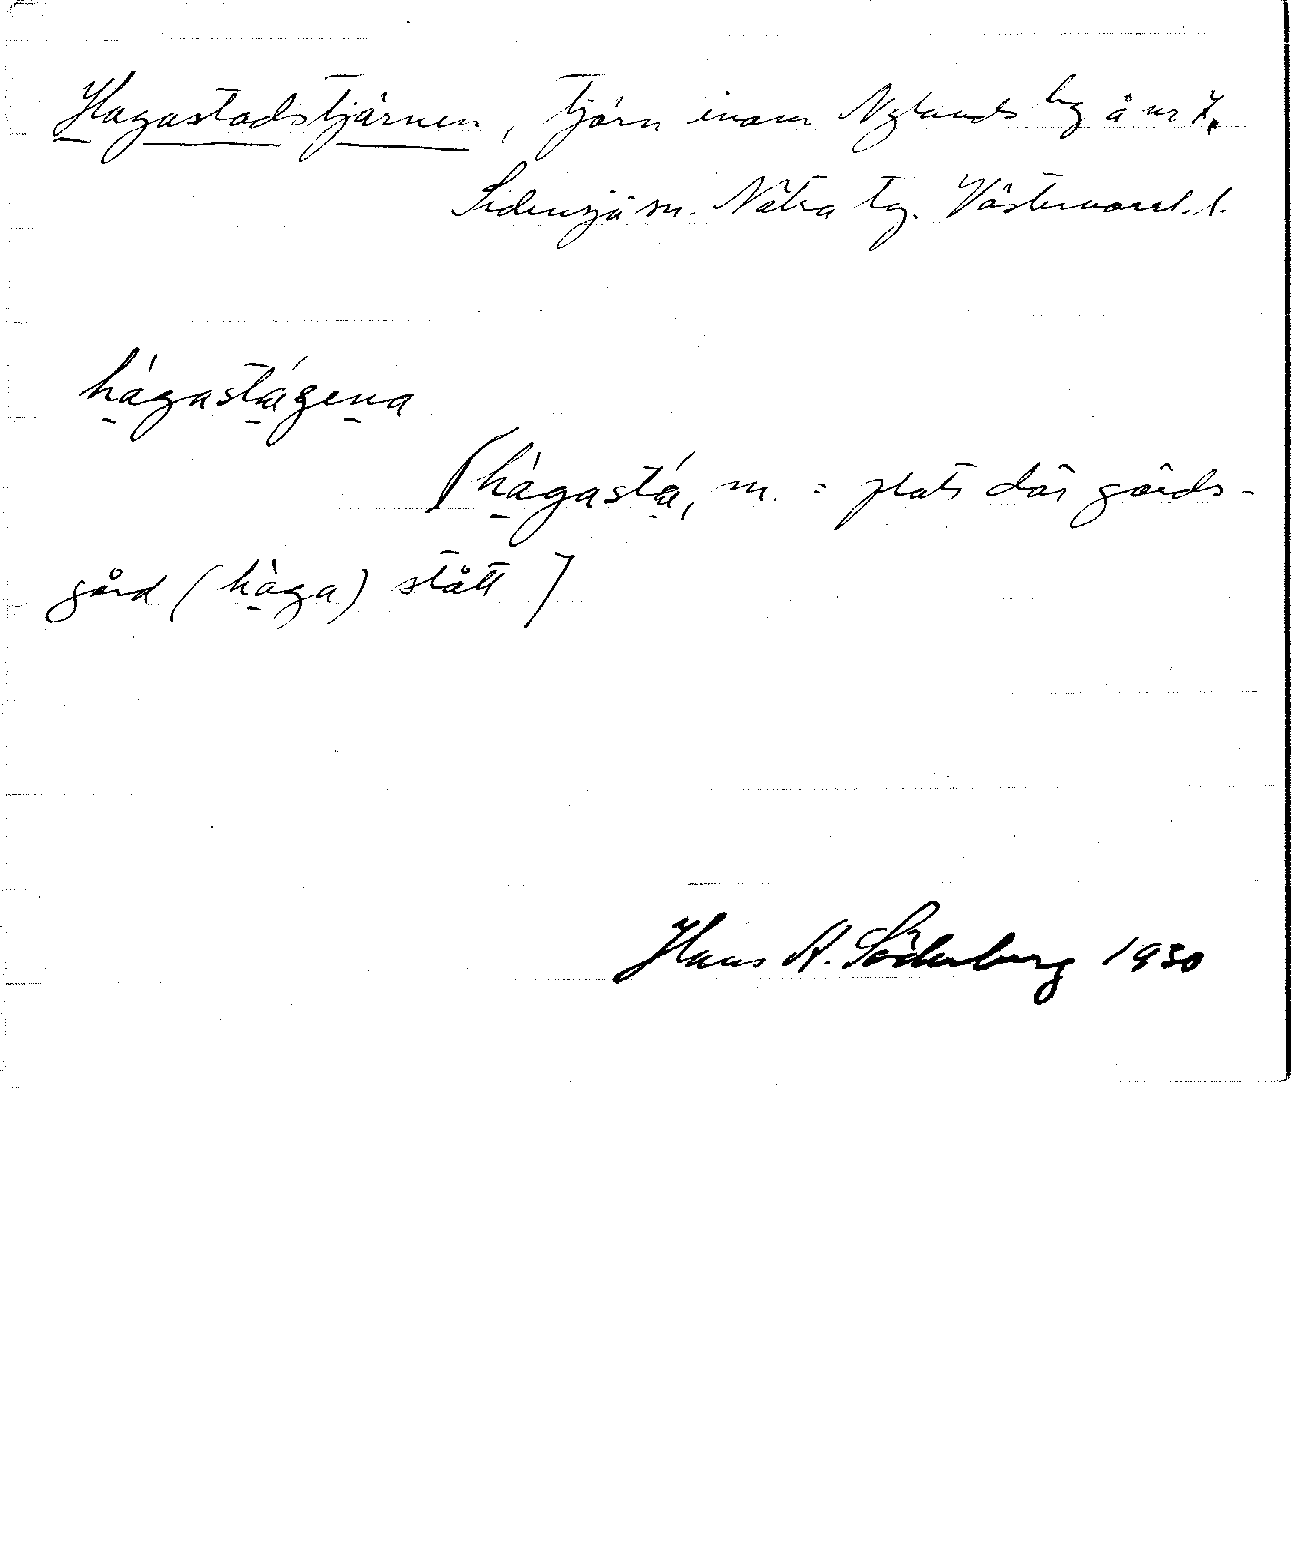 Hagastadstjärnen, tjärn inom Nylands by å nr 7.
Sidensjö sn. Nätra tg. Västernorrl. l.
hágastágena
[hàgastá, m. = plats där gärds-
gård (hàga) stått]
Hans A. Söderberg 1930